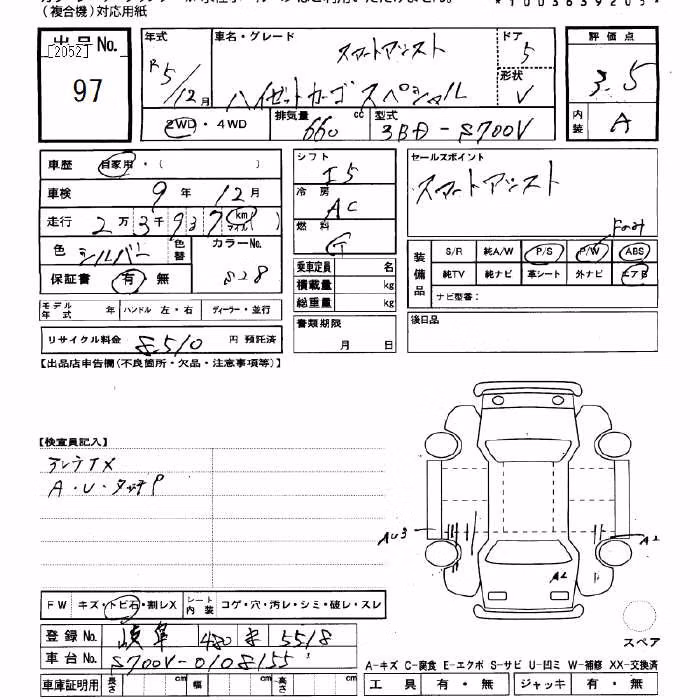 (複合機)対応用紙
*1003639205*
出品No.
[2052]
97
年式
R5/12月
車名・グレード
スマートアシスト
ハイゼットカーゴ スペシャル
ドア
5
形状
V
評価点
3.5
内装
A
2WD・4WD
排気量
660 cc
型式
3BD-S700V
車歴
自家用・( )
車検
9年12月
走行
2万3千937 km マイル( )
色
シルバー
色替
カラーNo.
S28
保証書
有・無
モデル年式 年
ハンドル 左・右
ディーラー・並行
リサイクル料金 8,510 円 預託済
シフト
I5
冷房
AC
燃料
G
乗車定員 名
積載量 kg
総重量 kg
書類期限
月 日
セールスポイント
スマートアシスト
Fのみ
装備品
S/R 純A/W P/S P/W ABS
純TV 純ナビ 革シート 外ナビ エアB
ナビ型番:
後日品
【出品店申告欄(不良箇所・欠品・注意事項等)】
【検査員記入】
A・U・タッチP
AU3
A2
A2
FW キズ・トビ石・割レX
シート内装 コゲ・穴・汚レ・シミ・破レ・スレ
登録No. 岐阜 480 き 5518
車台No. S700V-0108155
車庫証明用 長さ cm 幅 cm 高さ cm
スペア
A-キズ C-腐食 E-エクボ S-サビ U-凹ミ W-補修 XX-交換済
工具 有・無 ジャッキ 有・無